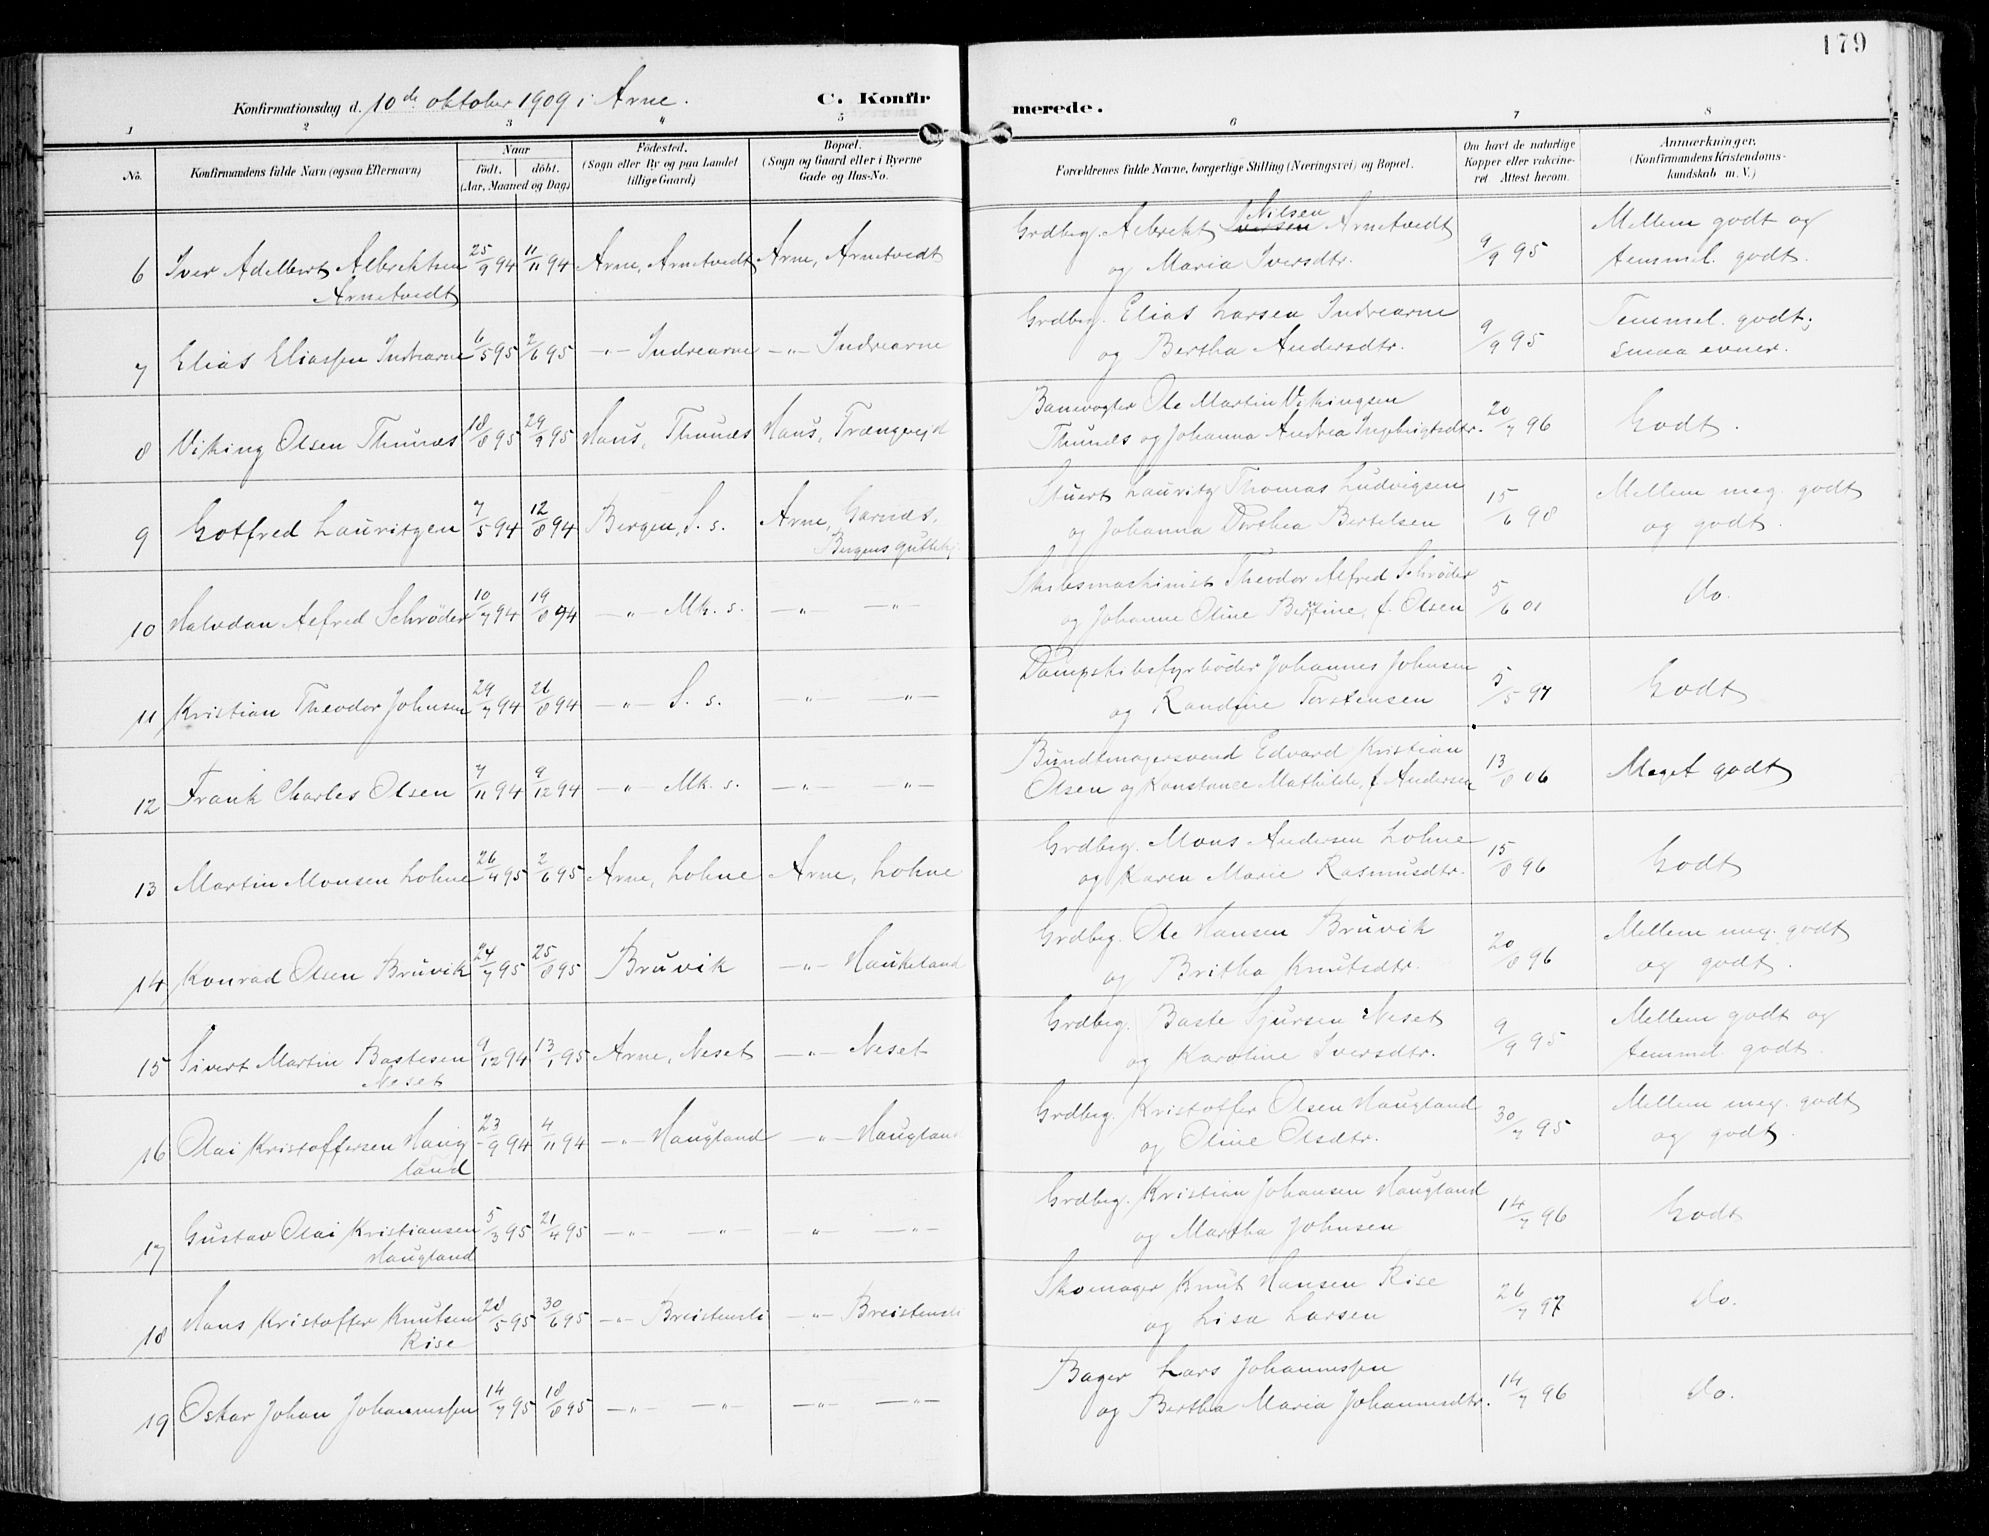 179
Konfirmationsdag d. 10de oktober 1909 i Arne. C. Konfirmerede.
1 2 3 4 5 6 7 8
No. Konfirmandens fulde Navn (ogsaa Efternavn) Naar født. døbt. (Aar, Maaned og Dag) Fødested. (Sogn eller By og paa Landet tillige Gaard.) Bopæl. (Sogn og Gaard eller i Byerne Gade og Hus-No. Forældrenes fulde Navne, borgerlige Stilling (Næringsvei) og Bopæl. Om havt de naturlige Kopper eller vakcineret Attest herom. Anmærkninger. (Konfirmandens Kristendomskundskab m. V.)
6 Iver Adelbert Albrektsen Arnetvedt 25/9 94 11/11 94 Arne, Arnetvedt Arne, Arnetvedt Grdbrg. Albrekt Iversen Nilsen Arnetvedt og Maria Iversdtr. 9/9 95 Mellem godt og temmel. godt.
7 Elias Eliassen Indrearne 6/5 95 2/6 95 —"— Indrearne —"— Indrearne Grdbrg. Elias Larsen Indrearne og Bertha Andersdtr. 9/9 95 Temmel. godt; smaa evner.
8 Viking Olsen Thunæs 18/8 95 29/9 95 Haus, Thunæs Haus, Trængereid Banevogter Ole Martin Vikingsen Thunæs og Johanna Andrea Ingebrigtsdtr. 20/7 96 Godt.
9 Gotfred Lauritzen 7/5 94 12/8 94 Bergen, S. s. Arne, Garnæs, Bergens guttehj. Stuert Lauritz Thomas Ludvigsen og Johanna Dorthea Bertelsen 15/6 98 Mellem meg. godt og godt.
10 Halvdan Alfred Schrøder 10/7 94 19/8 94 —"— Mk. s. —"— —"— Skibsmaskinist Theodor Alfred Schrøder og Johanne Oline Bertine, f. Olsen 5/6 01 do.
11 Kristian Theodor Johnsen 29/7 94 26/8 94 —"— S. s. —"— —"— Dampskibsfyrbøder Johannes Johnsen og Randine Torstensen 5/5 97 Godt
12 Frank Charles Olsen 7/11 94 9/12 94 —"— Mk. s. —"— —"— Bundtmagersvend Edvard Kristian Olsen og Konstance Mathilde, f. Andersen 13/8 06 Meget godt
13 Martin Monsen Lohne 26/4 95 2/6 95 Arne, Lohne Arne, Lohne Grdbrg. Mons Andersen Lohne og Karen Marie Rasmusdtr. 15/8 96 Godt
14 Konrad Olsen Bruvik 24/7 95 25/8 95 Bruvik —"— Haukeland Grdbrg. Ole Hansen Bruvik og Britha Knutsdtr. 20/8 96 Mellem meg. godt og godt.
15 Sivert Martin Bastesen Neset 9/12 94 13/1 95 Arne, Neset —"— Neset Grdbrg. Baste Sjursen Neset og Karoline Iversdtr. 9/9 95 Mellem godt og temmel. godt.
16 Olai Kristoffersen Haugland 23/9 94 4/11 94 —"— Haugland —"— Haugland Grdbrg. Kristoffer Olsen Haugland og Oline Olsdtr. 30/7 95 Mellem meg. godt og godt.
17 Gustav Olai Kristiansen Haugland 5/3 95 21/4 95 —"— —"— —"— —"— Grdbrg. Kristian Johansen Haugland og Martha Johnsen 14/7 96 Godt
18 Hans Kristoffer Knutsen Rise 28/5 95 30/6 95 —"— Breistensli —"— Breistensli Skomager Knut Hansen Rise og Lisa Larsen 26/7 97 do.
19 Oskar Johan Johannessen 14/7 95 18/8 95 —"— —"— —"— —"— Bager Lars Johannessen og Bertha Maria Johannesdtr. 14/7 96 do.